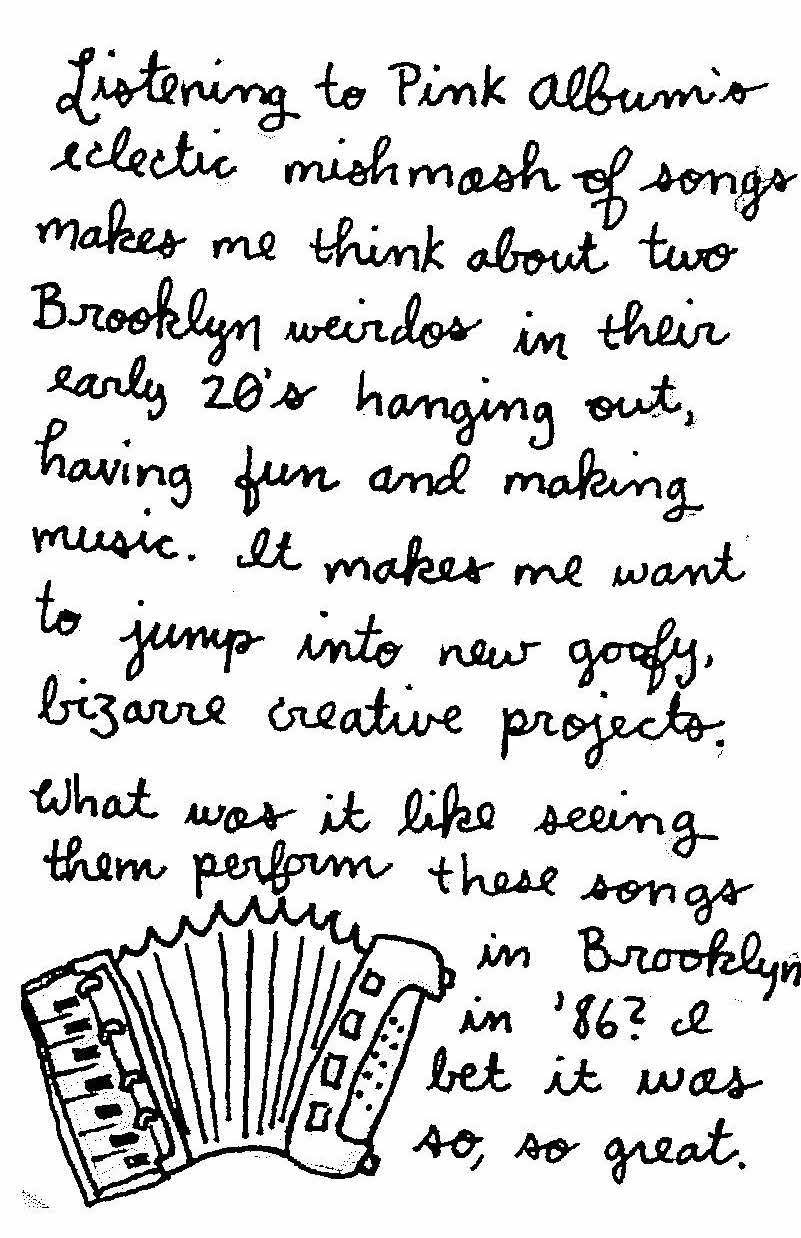 Listening to Pink Album's
eclectic mishmash of songs
makes me think about two
Brooklyn weirdos in their
early 20's hanging out,
having fun and making
music. It makes me want
to jump into new goofy,
bizarre creative projects.
What was it like seeing
them perform these songs
in Brooklyn
in '86? I
bet it was
so, so great.